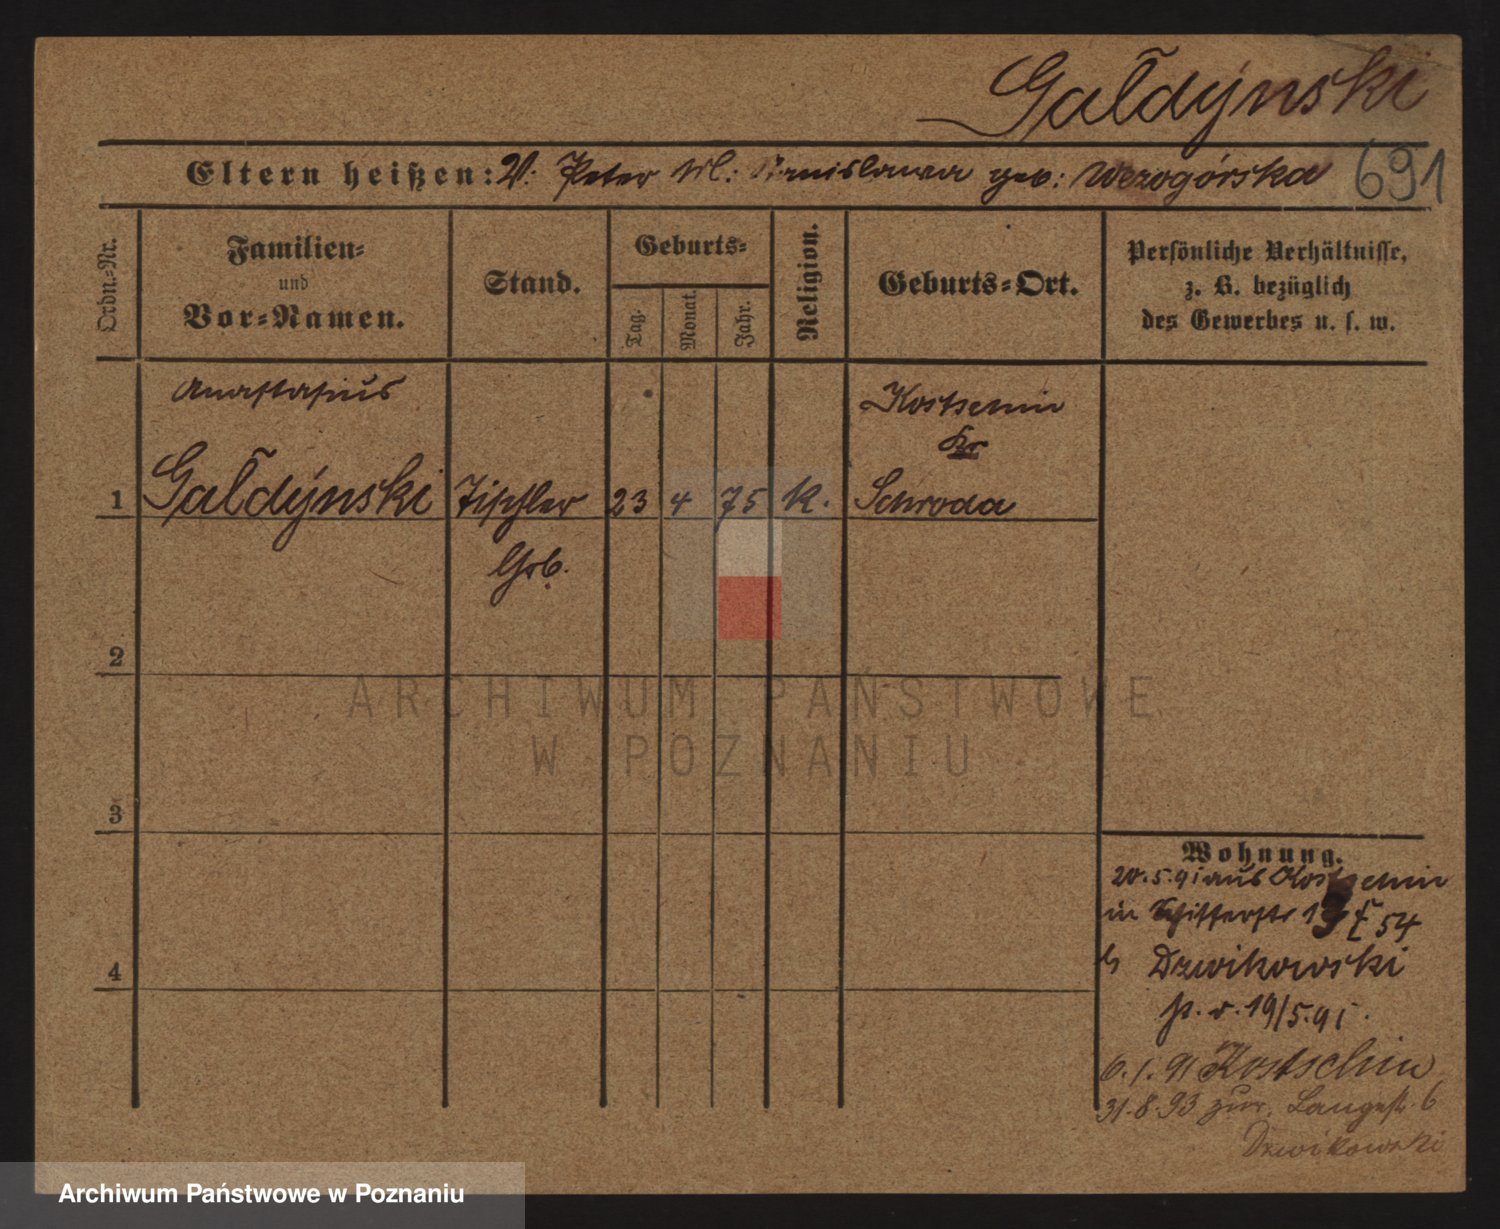 Gałdyński
Eltern heißen: V: Peter M: Stanislawa geb: Wezogórska 691
Ordn.-Nr.
Familien-
und
Vor-Namen.
Stand.
Geburts-
Tag.
Monat.
Jahr.
Religion.
Geburts-Ort.
Persönliche Verhältnisse,
z. B. bezüglich
des Gewerbes u. s. w.
Anastasius
Kostschin
Kr
1 Gałdyński Tischler 23 4 75 K. Schroda
Geb.
2
3
4
Wohnung.
20.5.91 aus Kostschin
in Schifferstr 19 E 54
b Drwikowski
19/5.91.
6.1.91 Kostschin
31.8.93 zur. Langestr. 6
Drwikowski
ARCHIWUM PAŃSTWOWE
W POZNANIU
Archiwum Państwowe w Poznaniu